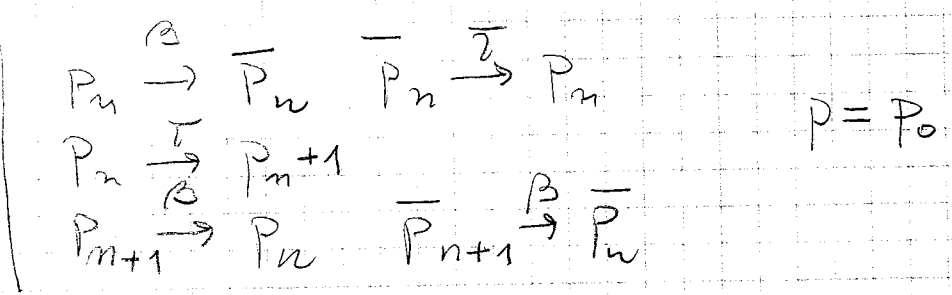 Pₙ →^β P̄ₙ P̄ₙ →^τ̄ Pₙ
Pₙ →^τ Pₙ+1 p = P₀
Pₙ₊₁ →^β Pₙ P̄ₙ₊₁ →^β P̄ₙ